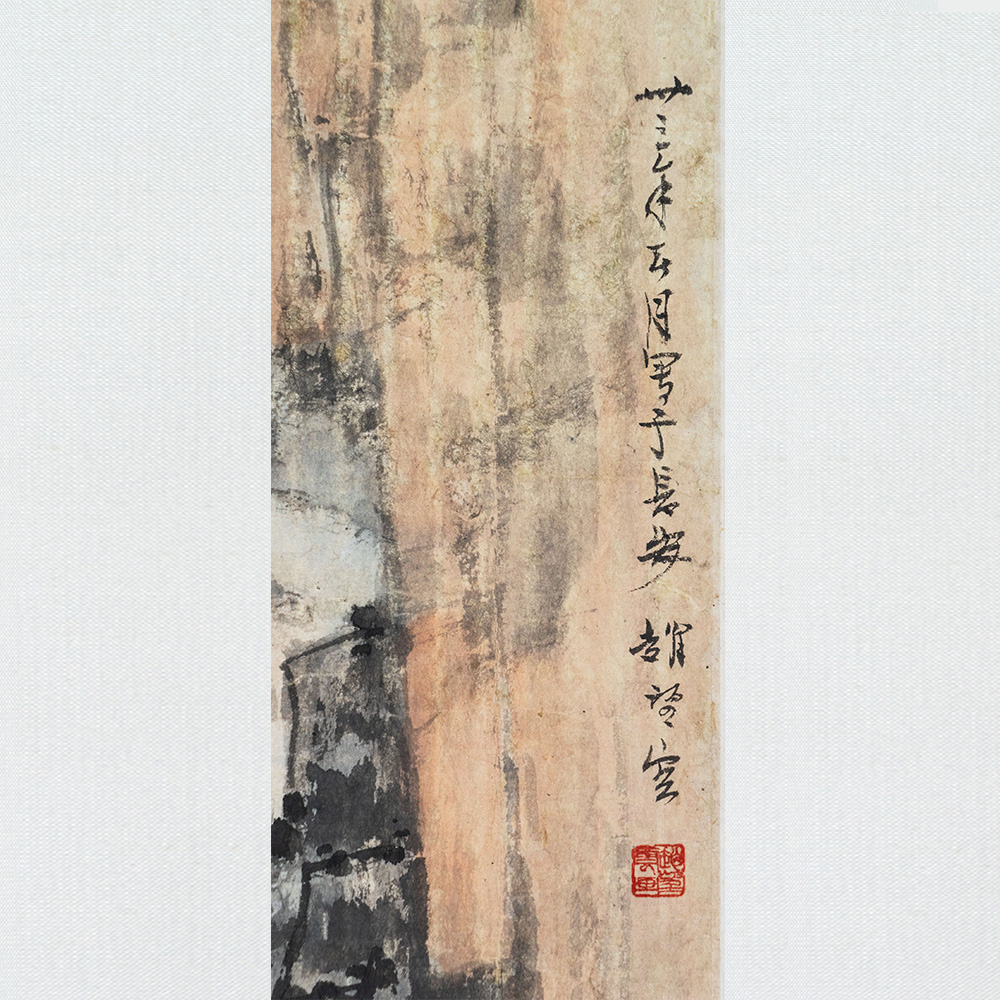 卅三年五月寫于長安 趙望雲